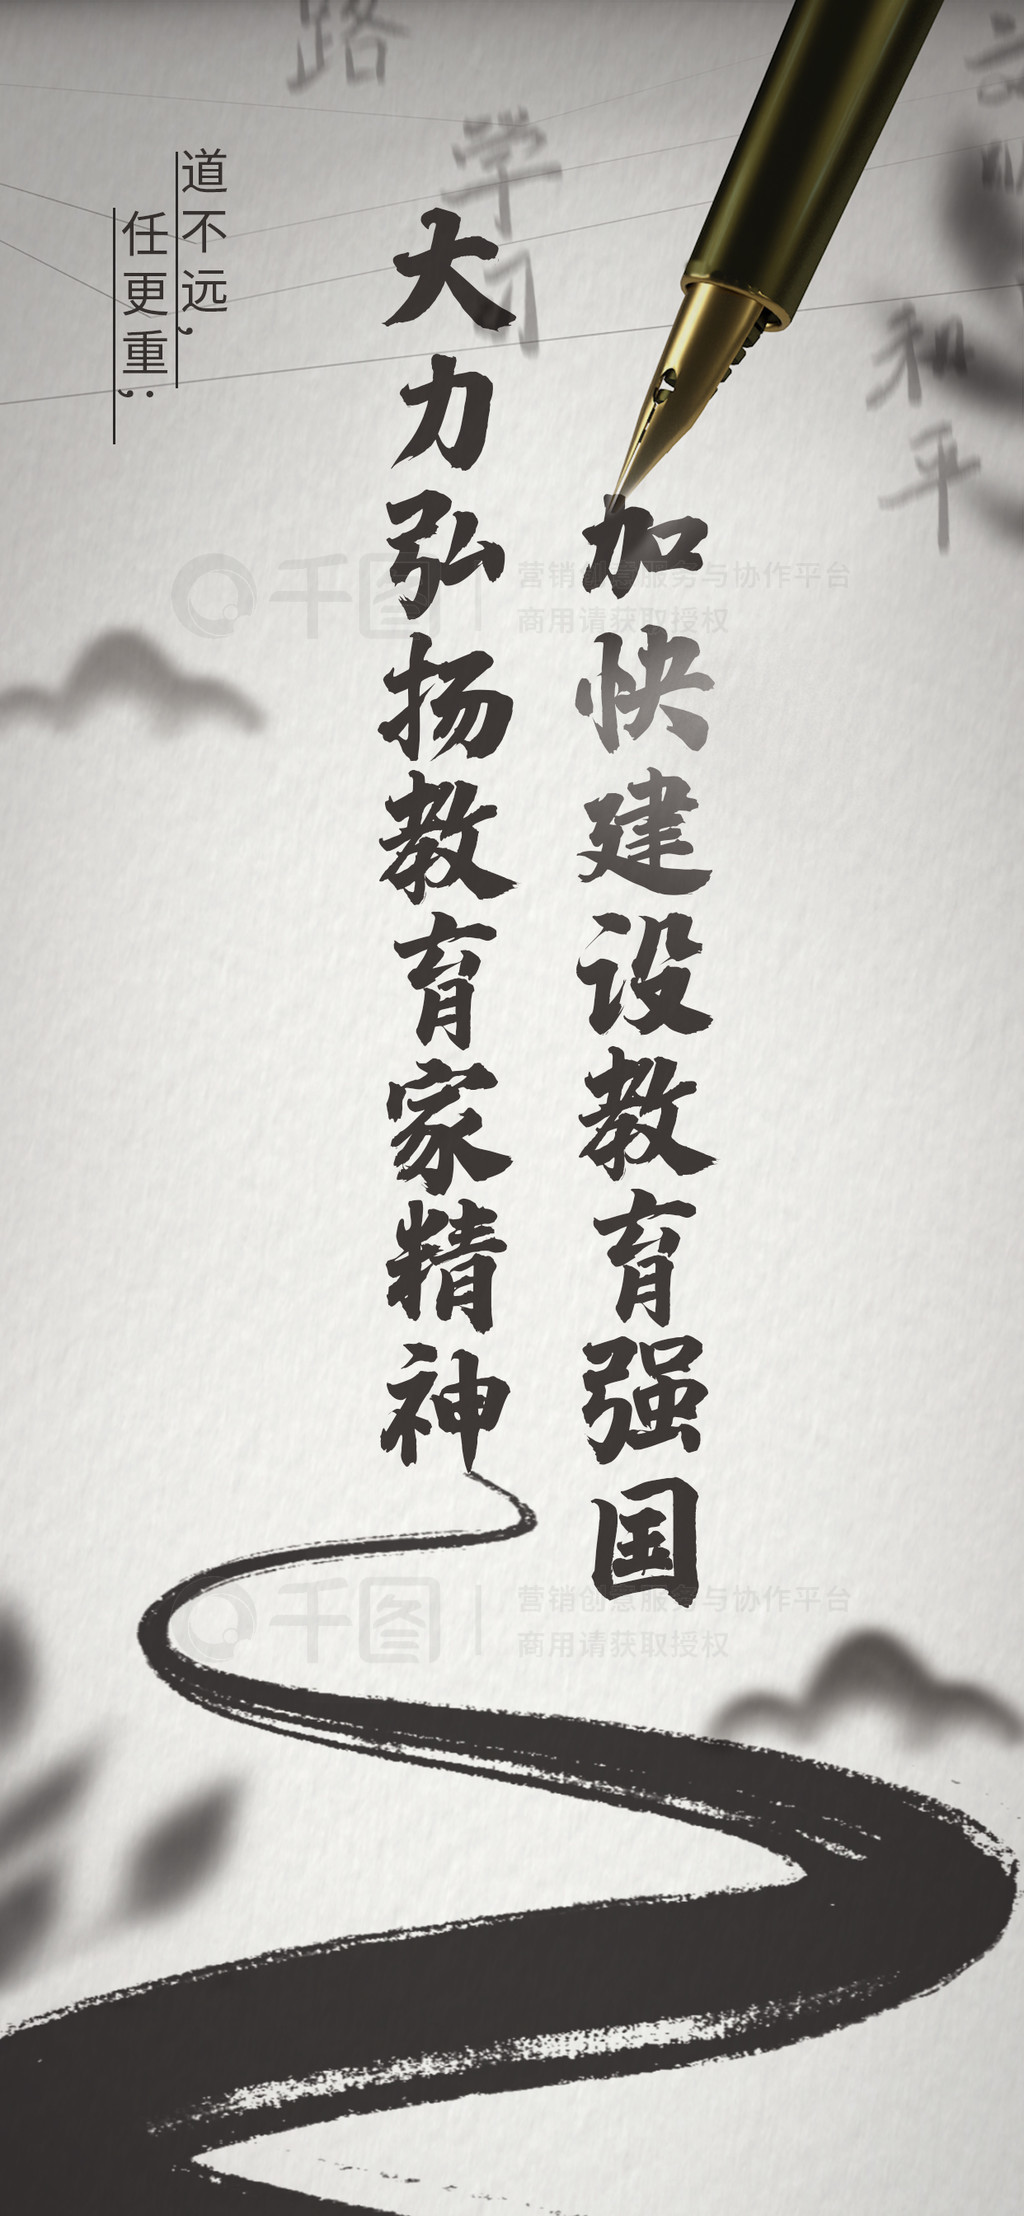 路
学习
和平
道不远，
任更重；
大力弘扬教育家精神
加快建设教育强国
千图
营销创意服务与协作平台
商用请获取授权
千图
营销创意服务与协作平台
商用请获取授权